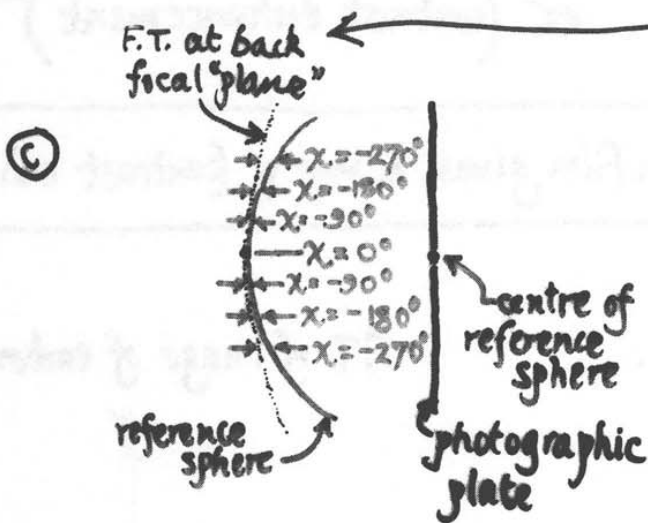 F.T. at back
focal "plane"
Ⓒ
χ = -270°
χ = -180°
χ = -90°
χ = 0°
χ = -90°
χ = -180°
χ = -270°
centre of
reference
sphere
reference
sphere
photographic
plate